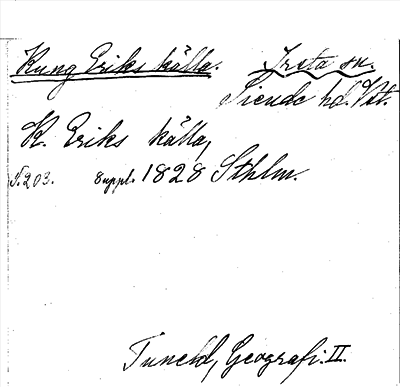 Kung Eriks källa. Ireta sn.
Siende hd. Vstm.
K. Eriks källa,
S. 203. Suppl. 1828 Sthlm.
Tuneld, Geografi. II.